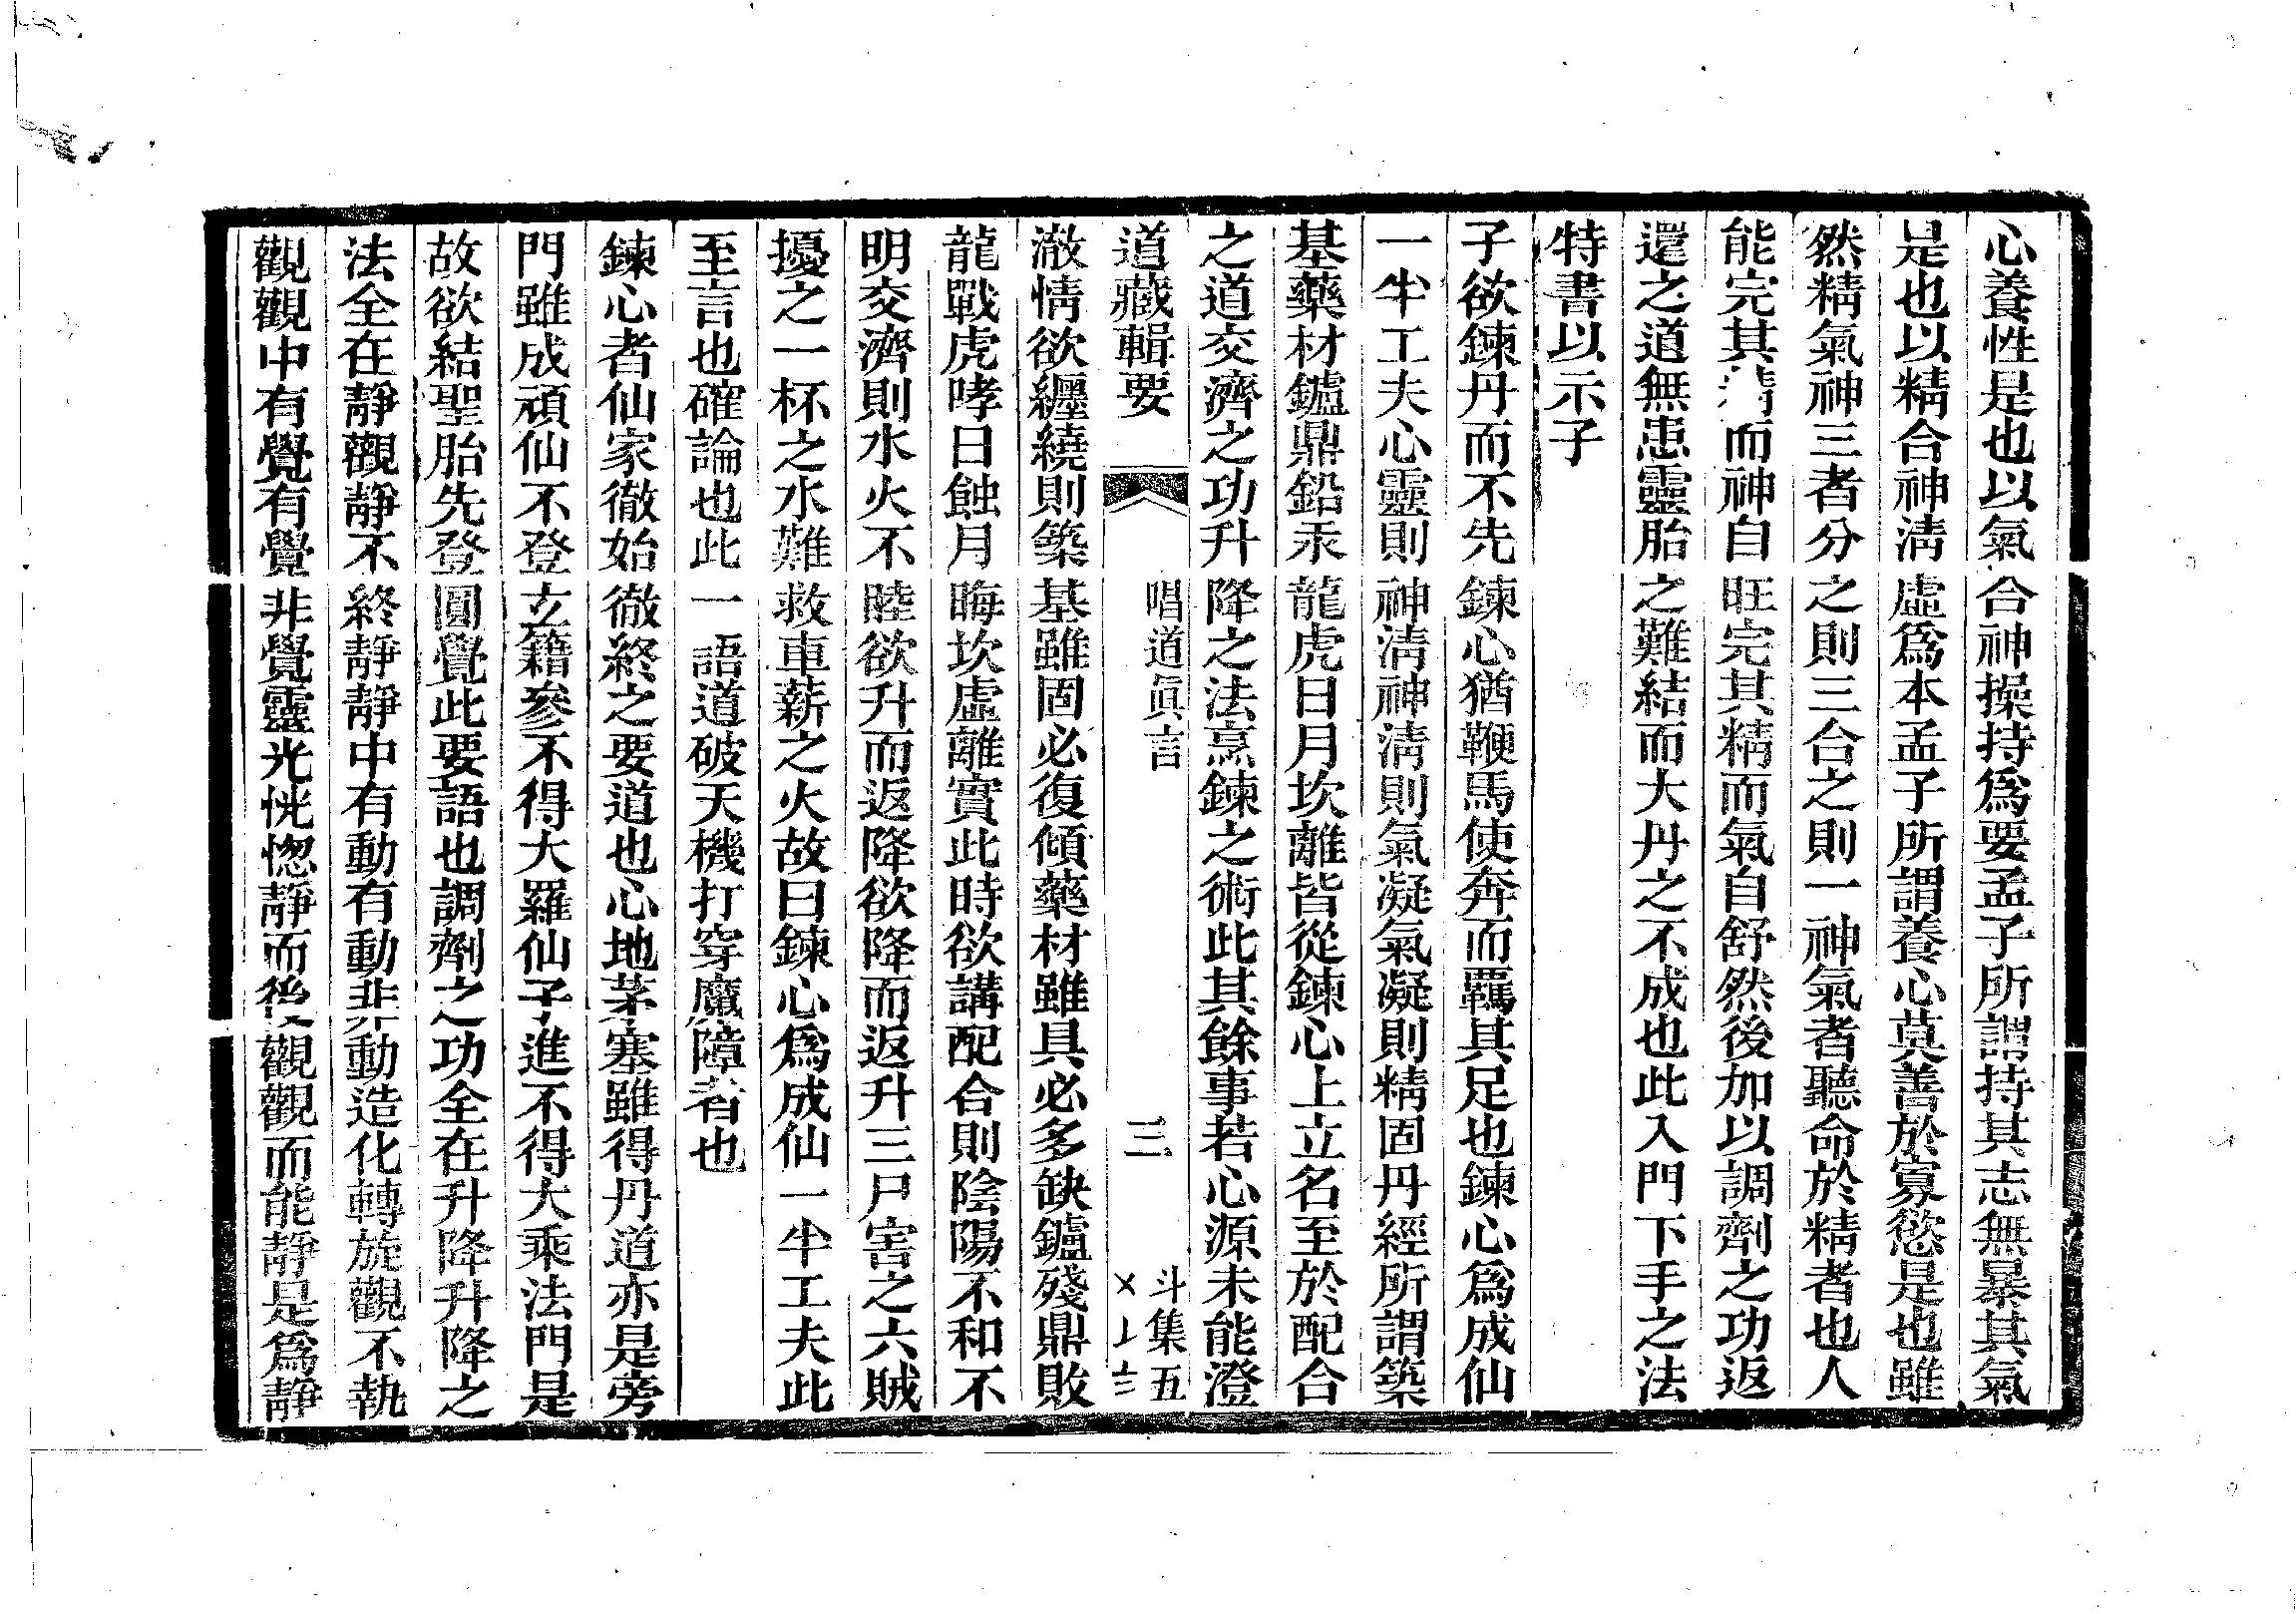 心養性是也以氣合神操持爲要孟子所謂持其志無暴其氣
是也以精合神清虛爲本孟子所謂養心莫善於寡慾是也雖
然精氣神三者分之則三合之則一神氣者聽命於精者也人
能完其精而神自旺完其精而氣自舒然後加以調劑之功返
還之道無患靈胎之難結而大丹之不成也此入門下手之法
特書以示子
子欲鍊丹而不先鍊心猶鞭馬使奔而羈其足也鍊心爲成仙
一半工夫心靈則神清神清則氣凝氣凝則精固丹經所謂築
基藥材鑪鼎鉛汞龍虎日月坎離皆從鍊心上立名至於配合
之道交濟之功升降之法烹鍊之術此其餘事若心源未能澄
道藏輯要
唱道眞言
三
斗集五
澈情欲纏繞則築基雖固必復傾藥材雖具必多缺鑪殘鼎敗
龍戰虎哮日蝕月晦坎虛離實此時欲講配合則陰陽不和不
明交濟則水火不睦欲升而返降欲降而返升三尸害之六賊
擾之一杯之水難救車薪之火故曰鍊心爲成仙一半工夫此
至言也確論也此一語道破天機打穿魔障者也
鍊心者仙家徹始徹終之要道也心地茅塞雖得丹道亦是旁
門雖成頑仙不登玄籍參不得大羅仙子進不得大乘法門是
故欲結聖胎先登圓覺此要語也調劑之功全在升降升降之
法全在靜觀靜不終靜靜中有動有動非動造化轉旋觀不執
觀觀中有覺有覺非覺靈光恍惚靜而後觀觀而能靜是爲靜